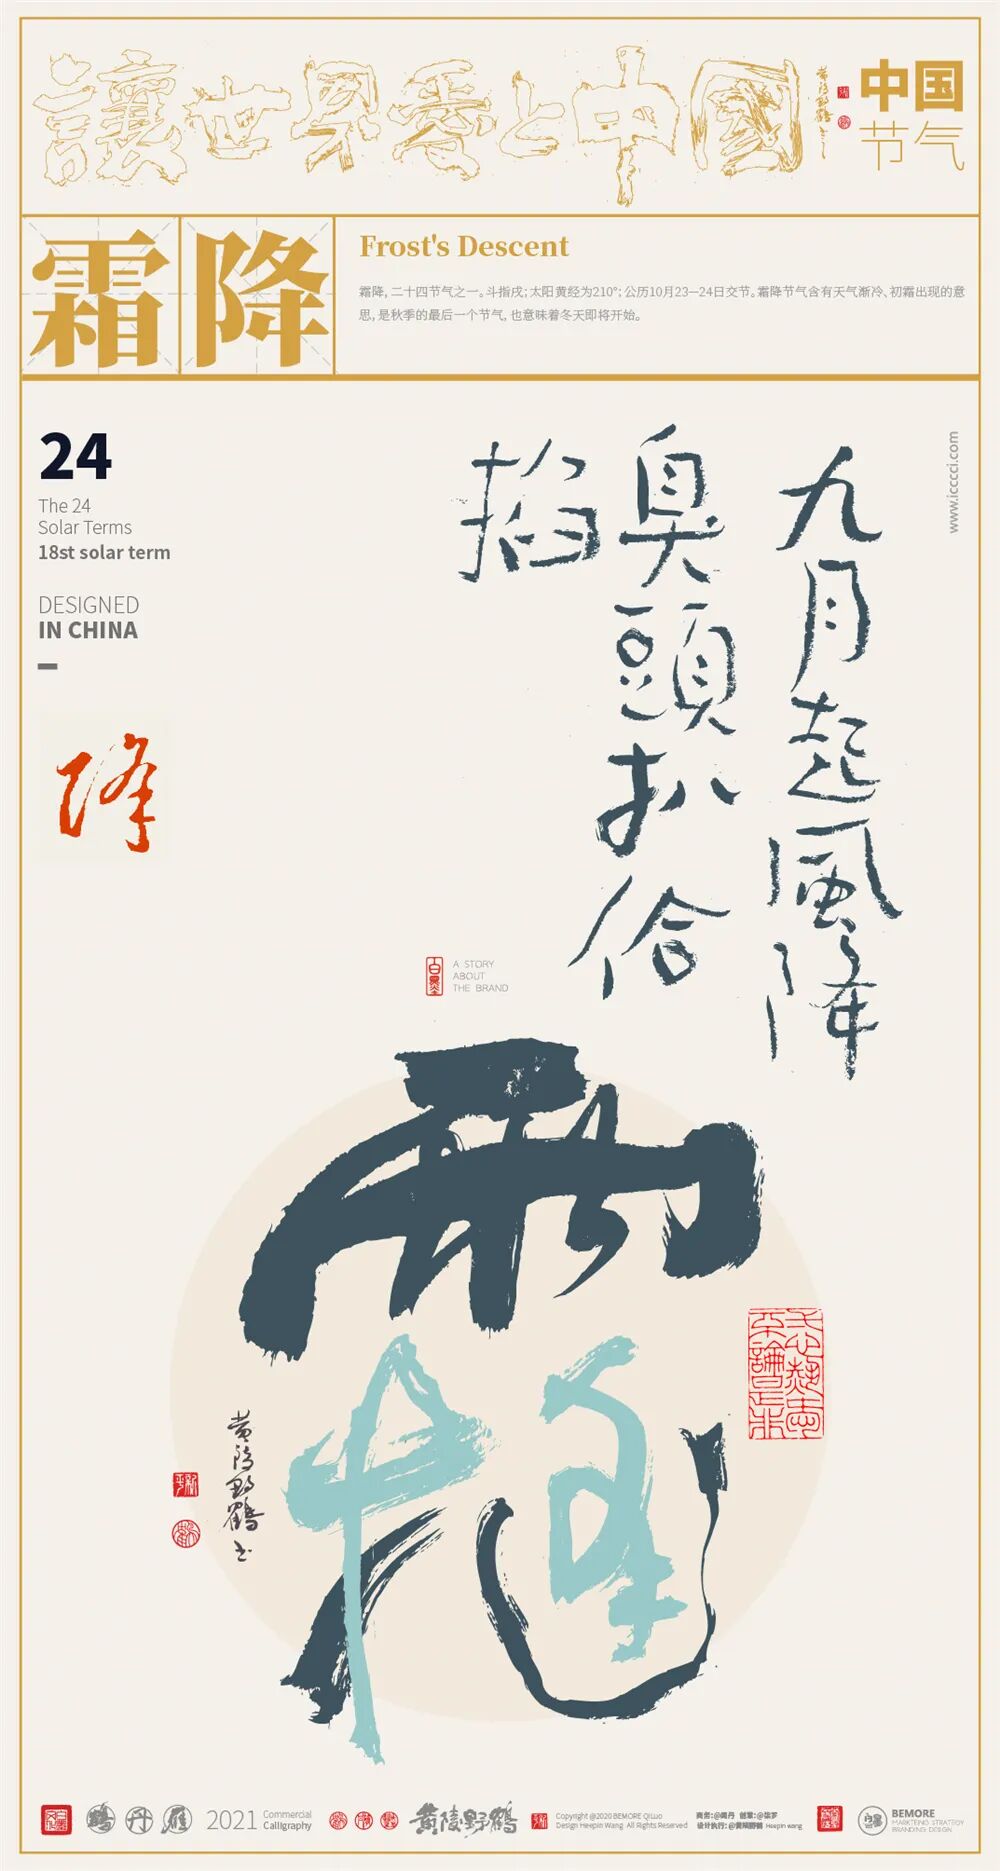 讓世界愛上中國
黄陵野鶴书
中国
节气
霜降
Frost's Descent
霜降，二十四节气之一。斗指戌；太阳黄经为210°；公历10月23—24日交节。霜降节气含有天气渐冷、初霜出现的意
思，是秋季的最后一个节气，也意味着冬天即将开始。
24
The 24
Solar Terms
18st solar term
DESIGNED
IN CHINA
降
www.icccci.com
九月起風降
臭頭扒佮
掐
A STORY
ABOUT
THE BRAND
霜降
黄陵野鶴书
2021
Commercial
Calligraphy
黄陵野鹤
Copyright @2020 BEMORE QiLuo
Design Heepin Wang All Rights Reserved
Heepin wang
BEMORE
MARKTEING STRATEGY
BRANDING DESIGN